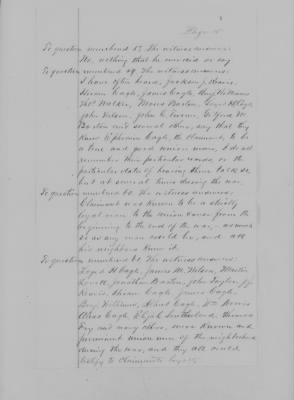 Page 5
To question numbered 57. The witness answers:
No, nothing that he ever did or say
To question numbered 59. The witness answers:
I have often heard, Jackson J. Reavis,
Hiram Cagle, James Cagle, Benj Williams
Thos. Walker, Moses Barton, Loyd H Cagle,
John Nelson, John C.
Barton and several others, say that they
Knew Ephraim Cagle, the Claimant, to be
a true and good union man, I do not
remember their particular words, or the
particular date of hearing them talk so,
but at several times during the war.
To question numbered 60. The witness answers:
Claimant was known to be a strictly
loyal man to the Union cause from the
beginning to the end of the war, as much
so as any man could be, and all
his neighbors knew it.
To question numbered 61. The witness answers:
Loyd H Cagle, James M. Nelson, Martin
Lovell, Jonathan Barton, John Taylor,
Reavis, Hiram Cagle, James Cagle,
Benj. Williams, Cagle, Wm Reavis
Cagle, Elijah Southerland, Thomas
Fry and many others, were known and
prominent union men of the neighborhood
during the war, and they all could
testify to Claimants loyalty